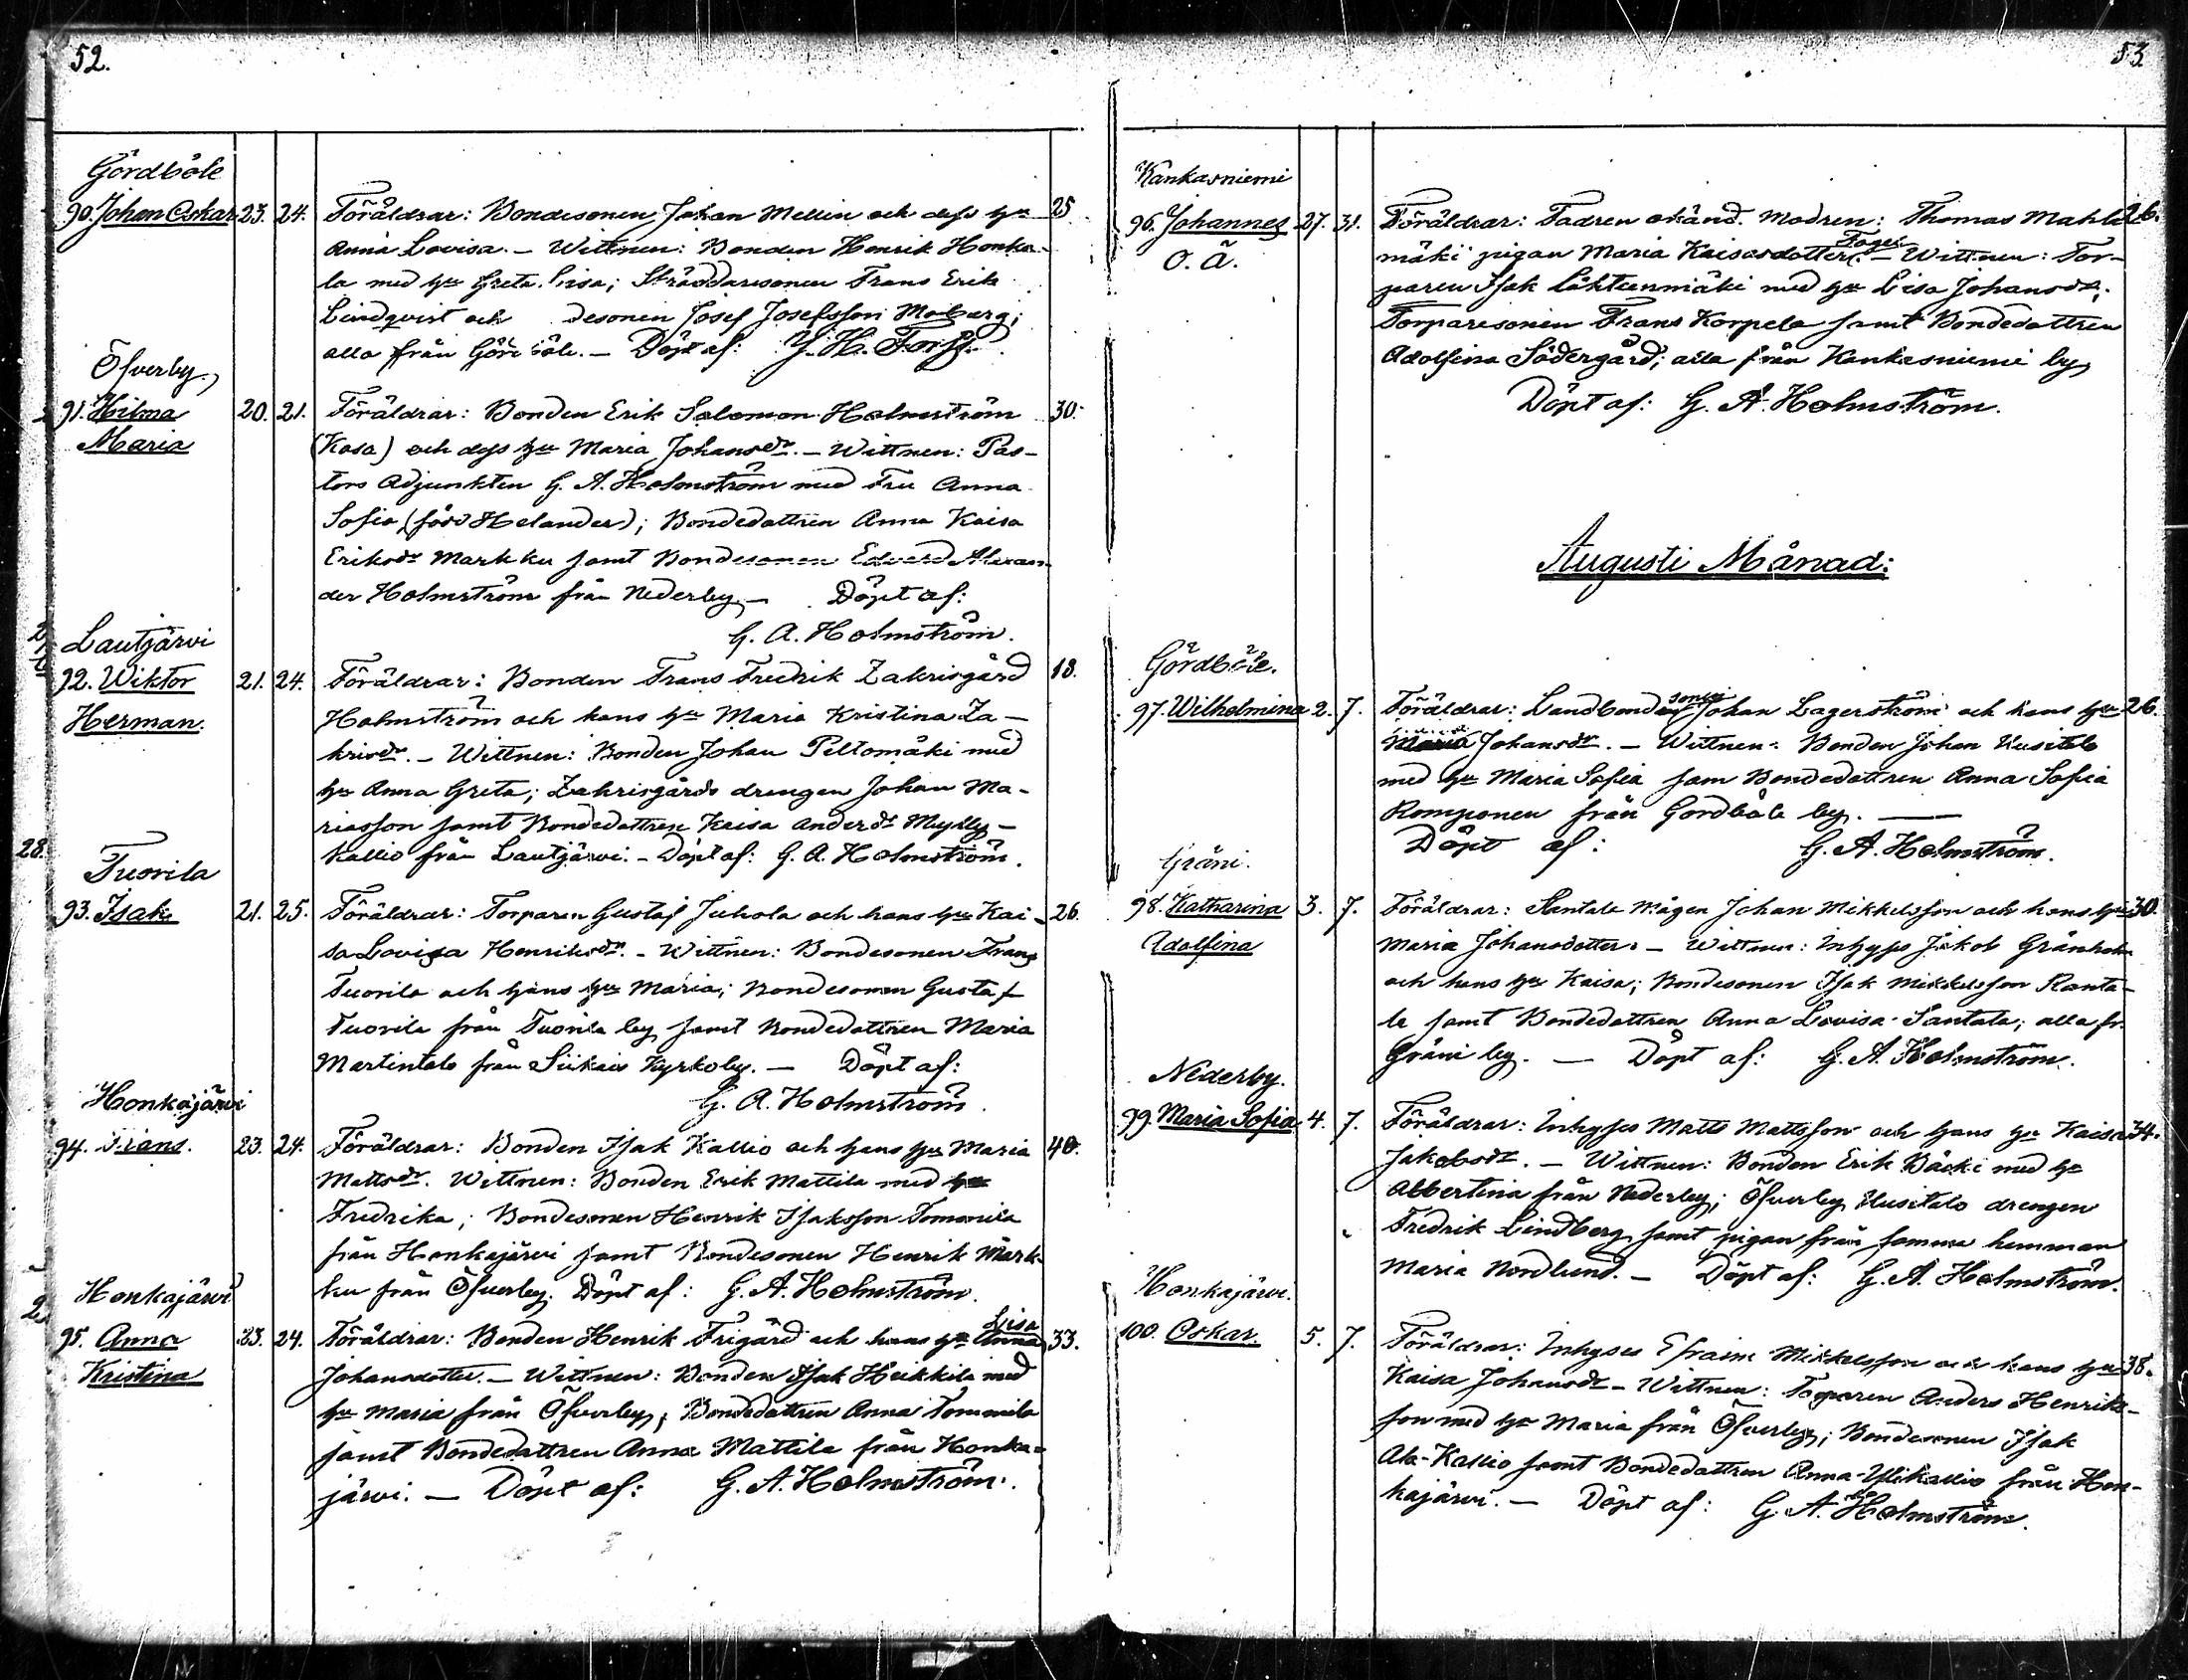 52.
Gördböle
90. Johan Oskar 23. 24. Föräldrar: Bondesonen Johan Mellin och dess hu 25
Anna Lovisa. – Wittnen: Bonden Henrik Honka-
la med hu Greta Lisa; Skräddaresonen Frans Erik
Lindqvist och desonen Josef Josefsson Moberg;
alla från Görd böle. – Döpt af: J. H. Forss.
Öfverby.
91. Hilma 20. 21. Föräldrar: Bonden Erik Salomon Holmström 30.
Maria (Kasa) och dess hu Maria Johansdr. – Wittnen: Pas-
tors Adjunkten G. A. Holmström med Fru Anna
Sofia (född Helander); Bondedottren Anna Kaisa
Eriksdr Markku samt Bondesonen Edvard Alexan-
der Holmström från Nederby. – Döpt af:
G. A. Holmström.
Lautjärvi
92. Wiktor 21. 24. Föräldrar: Bonden Frans Fredrik Zakrisgård 18.
Herman. Holmström och hans hu Maria Kristina Za-
krisdr. – Wittnen: Bonden Johan Peltomäki med
hu Anna Greta; Zakrisgårds drengen Johan Ma-
riasson samt Bondedottren Kaisa Andersdr Mylly-
kallio från Lautjärvi. – Döpt af: G. A. Holmström.
28.
Tuorila
93. Isak 21. 25. Föräldrar: Torparen Gustaf Juhola och hans hu Kai- 26.
sa Lovisa Henriksdr. – Wittnen: Bondesonen Frans
Tuorila och hans hu Maria; Bondesonen Gustaf
Tuorila från Tuorila by samt Bondedottren Maria
Martintalo från Siikais Kyrkoby. – Döpt af:
G. A. Holmström
Honkajärvi
94. Frans. 23. 24. Föräldrar: Bonden Isak Kallio och hans hu Maria 40.
Mattsdr. Wittnen: Bonden Erik Mattila med hu
Fredrika; Bondesonen Henrik Isaksson Tommila
från Honkajärvi samt Bondesonen Henrik Mark-
ku från Öfverby. Döpt af: G. A. Holmström.
Honkajärvi
Lisa
95. Anna 23. 24. Föräldrar: Bonden Henrik Frigård och hans hu Anna 33.
Kristina Johansdotter. – Wittnen: Bonden Isak Heikkilä med
hu Maria från Öfverby; Bondedottren Anna Tommila
samt Bondedottren Anna Mattila från Honka-
järvi. – Döpt af: G. A. Holmström.
53
Kankasniemi
96. Johannes 27. 31. Föräldrar: Fadren okänd. Modren: Thomas Mahla- 26.
O. Ä. mäki pigan Maria Kaisasdotter. – Wittnen: Tor-
paren Isak Lähteenmäki med hu Lisa Johansdr;
Torparesonen Frans Korpela samt Bondedottren
Adolfina Södergård; alla från Kankasniemi by
Döpt af: G. A. Holmström.
Augusti Månad:
Gördböle.
97. Wilhelmina 2. 7. Föräldrar: Landbondesonen Johan Lagerström och hans hu 26.
Maria Johansdr. – Wittnen: Bonden Johan Uusitalo
med hu Maria Sofia sam Bondedottren Anna Sofia
Romponen från Gördböle by. –
Döpt af: G. A. Holmström.
Gräni.
98. Katharina 3. 7. Föräldrar: Santala mågen Johan Mikkelsson och hans hu 30.
Adolfina Maria Johansdotter. – Wittnen: Inhyses Jakob Grönholm
och hans hu Kaisa; Bondesonen Isak Mikkelsson Ranta-
la samt Bondedottren Anna Lovisa Santala; alla fr.
Gräni by. – Döpt af: G. A. Holmström.
Nederby.
99. Maria Sofia 4. 7. Föräldrar: Inhyses Matts Mattsson och hans hu Kaisa 34.
Jakobsdr. – Wittnen: Bonden Erik Bäcki med hu
Albertina från Nederby; Öfverby Uusitalo drengen
Fredrik Lindberg samt pigan från samma hemman
Maria Nordlund. – Döpt af: G. A. Holmström.
Honkajärvi.
100. Oskar. 5. 7. Föräldrar: Inhyses Efraim Mikkelsson och hans hu 38.
Kaisa Johansdr – Wittnen: Torparen Anders Henriks-
son med hu Maria från Öfverby; Bondesonen Isak
Ala-Kallio samt Bondedottren Anna Ylikallio från Hon-
kajärvi. – Döpt af: G. A. Holmström.